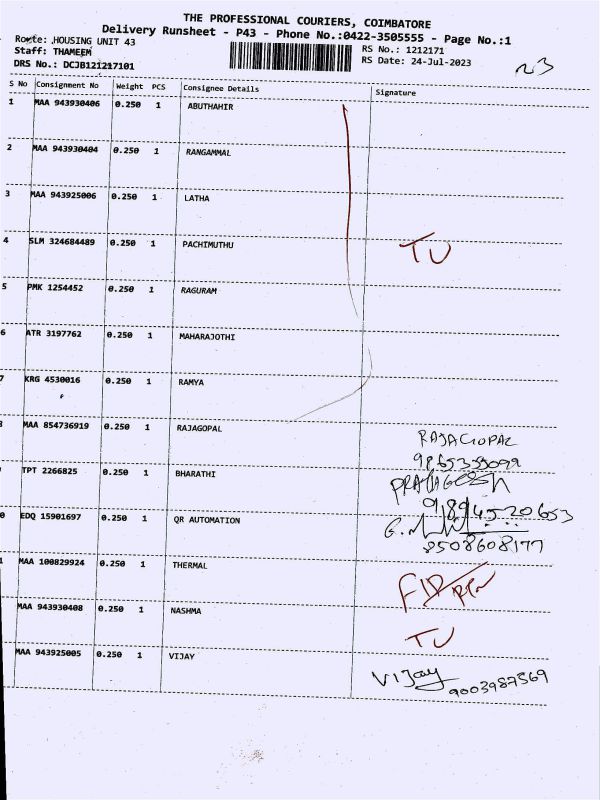 THE PROFESSIONAL COURIERS, COIMBATORE
Delivery Runsheet - P43 - Phone No.:0422-3505555 - Page No.:1
Route: HOUSING UNIT 43
Staff: THAMEEM
DRS No.: DCJB121217101
RS No.: 1212171
RS Date: 24-Jul-2023
23
S No Consignment No Weight PCS Consignee Details Signature
1 MAA 943930406 0.250 1 ABUTHAHIR
2 MAA 943930404 0.250 1 RANGAMMAL
3 MAA 943925006 0.250 1 LATHA
4 SLM 324684489 0.250 1 PACHIMUTHU TU
5 PMK 1254452 0.250 1 RAGURAM
6 ATR 3197762 0.250 1 MAHARAJOTHI
7 KRG 4530016 0.250 1 RAMYA
8 MAA 854736919 0.250 1 RAJAGOPAL RAJAGOPAL
TPT 2266825 0.250 1 BHARATHI
0 EDQ 15901697 0.250 1 QR AUTOMATION
8508608177
1 MAA 100829924 0.250 1 THERMAL
MAA 943930408 0.250 1 NASHMA TU
MAA 943925005 0.250 1 VIJAY Vijay
9003987569